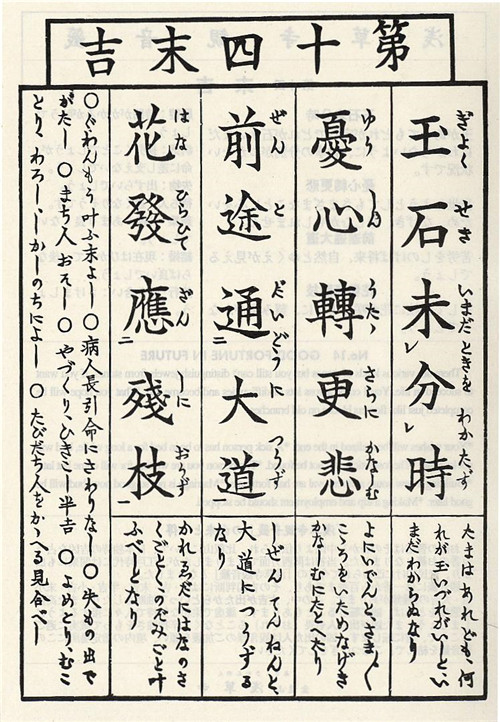 第十四末吉
玉石未分時
ぎよく せき いまだ ときを わかたず
憂心轉更悲
ゆう しん たゝ さらに かなしむ
前途通大道
ぜん だいどうに つうず
花發應殘枝
はな ひらひて ざんしに おうず
たまはあれども、何
れが玉いづれがいしと、い
まだわからぬなり
よにいでんと、さま〴〵
こころをいためなげき
かなしむにたとへたり
しぜんてんねんと、
大道につうずる
なり
かれゑだにはなのさ
くごとくのぞみごと叶
ふべしとなり
〇ぐわんもう叶ふ末よし 〇病人長引命にさわりなし 〇失もの出で
がたし 〇まち人おそし 〇やづくり、ひきこし半吉 〇よめとり、むこ
とり、わろし、しかしのちによし 〇たびだち人をかゝへる見合べし